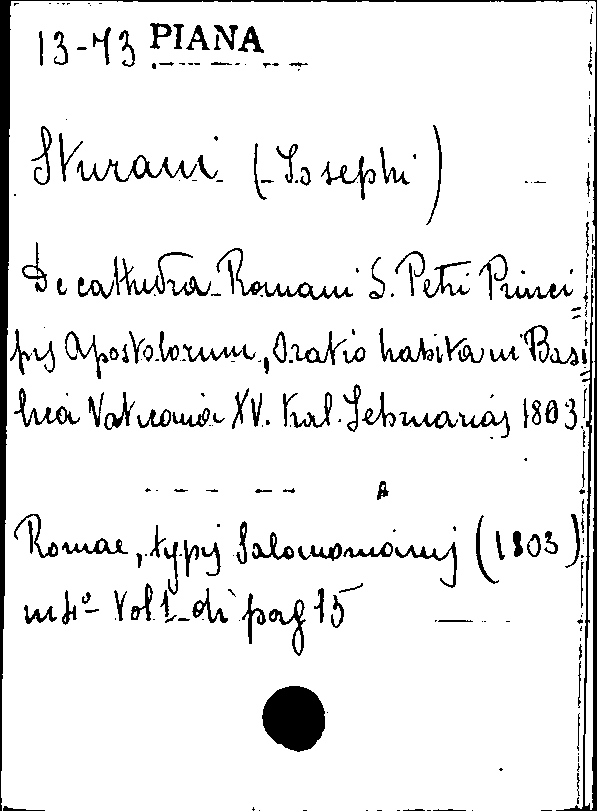 13-73 PIANA
Sturani (Josephi)
De cathedra Romani S. Petri Princi=
pis Apostolorum, Oratio habita in Basi=
lica Vaticana XV. Kal. Februarias 1803
Romae, typis Salomonianis (1803)
in 4º Vol 1 di pag 15